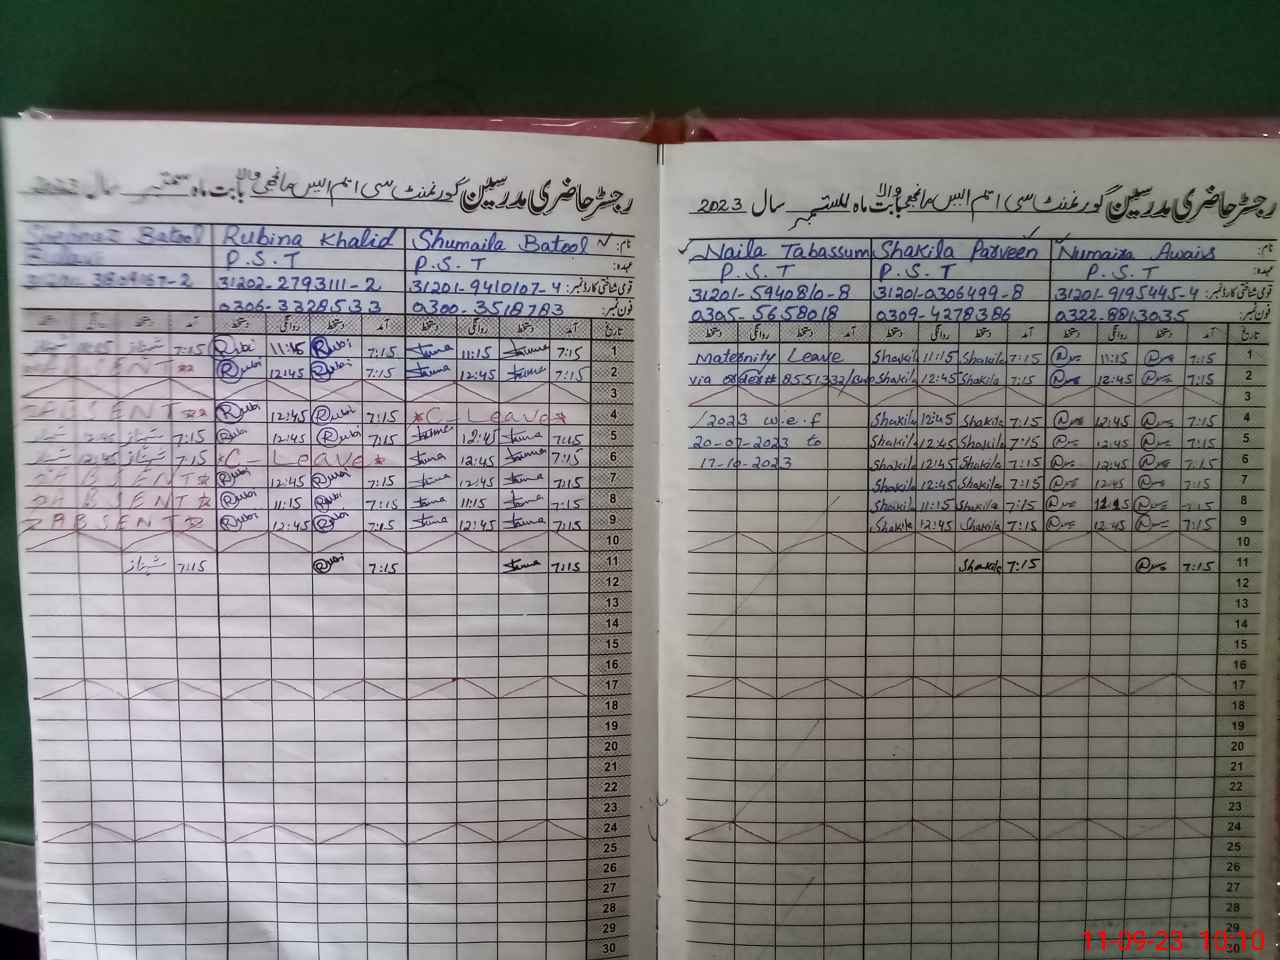 رجسٹر حاضری مدرسین گورنمنٹ سی ایم ایس مانجھی والا بابت ماہ ستمبر سال 2023
نام: Shumaila Batool Rubina Khalid Shehnaz Batool
عہدہ: P.S.T P.S.T
قومی شناختی کارڈ نمبر: 31201-9410107-4 31202-2793111-2
فون نمبر: 0300-3518783 0306-3328533
تاریخ آمد دستخط روانگی دستخط آمد دستخط روانگی دستخط آمد دستخط
1 7:15 11:15 7:15 Rubi 11:15 Rubi 7:15 شہناز
2 7:15 12:45 7:15 Rubi 12:45 Rubi ABSENT
3
4 C-Leave 7:15 Rubi 12:45 Rubi ABSENT
5 7:15 12:45 7:15 Rubi 12:45 Rubi 7:15 شہناز 12:45
6 7:15 12:45 C-Leave 7:15 شہناز 12:45
7 7:15 12:45 7:15 Rubi 12:45 Rubi ABSENT
8 7:15 11:15 7:15 Rubi 11:15 Rubi ABSENT
9 7:15 12:45 7:15 Rubi 12:45 Rubi ABSENT
10
11 7:15 7:15 Rubi 7:15 شہناز
12
13
14
15
16
17
18
19
20
21
22
23
24
25
26
27
28
29
30
رجسٹر حاضری مدرسین گورنمنٹ سی ایم ایس مانجھی والا بابت ماہ ستمبر سال 2023
نام: Numaira Awais Shakila Parveen Naila Tabassum
عہدہ: P.S.T P.S.T P.S.T
قومی شناختی کارڈ نمبر: 31201-9195445-4 31201-0306499-8 31201-5940810-8
فون نمبر: 0322-8813035 0309-4278386 0305-5658018
تاریخ آمد دستخط روانگی دستخط آمد دستخط روانگی دستخط آمد دستخط روانگی دستخط
1 7:15 11:15 7:15 Shakila 11:15 Shakila Maternity Leave
2 7:15 12:45 7:15 Shakila 12:45 Shakila via order# 8551332/
3
4 7:15 12:45 7:15 Shakila 12:45 Shakila /2023 w.e.f
5 7:15 12:45 7:15 Shakila 12:45 Shakila 20-07-2023 to
6 7:15 12:45 7:15 Shakila 12:45 Shakila 17-10-2023
7 7:15 12:45 7:15 Shakila 12:45 Shakila
8 7:15 11:15 7:15 Shakila 11:15 Shakila
9 7:15 12:45 7:15 Shakila 12:45 Shakila
10
11 7:15 7:15 Shakila
12
13
14
15
16
17
18
19
20
21
22
23
24
25
26
27
28
29
30
11-09-23 10:10